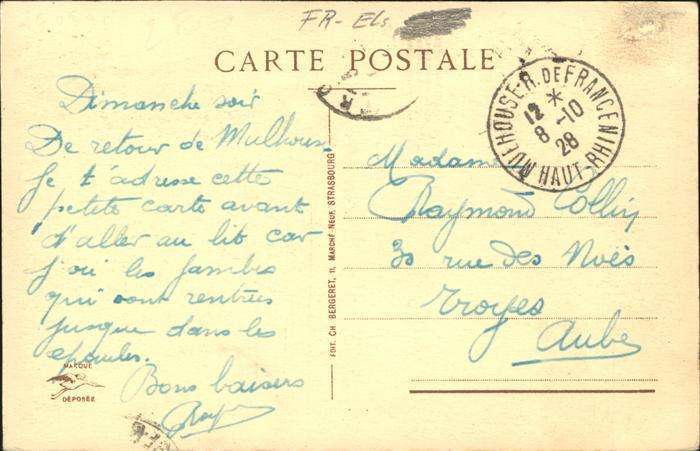 FR-Els
CARTE POSTALE
MULHOUSE-R. DE FRANCE
12 *
8 -10
28
HAUT-RHIN
Dimanche soir
De retour de Mulhouse
Je t'adresse cette
petite carte avant
d'aller au lit car
j'ai les jambes
qui sont rentrées
jusque dans les
épaules.
Bons baisers
Ray
MARQUE
DÉPOSÉE
EDIT. CH BERGERET, 11, MARCHÉ-NEUF, STRASBOURG
Madame
Raymond Collin
30 rue des Noës
Troyes
Aube